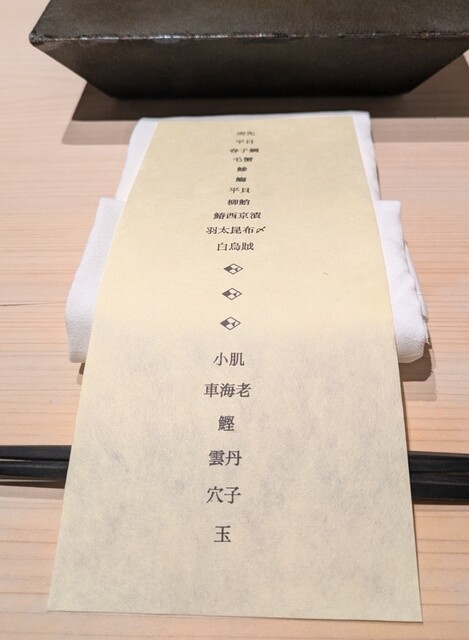 平目
春子鯛
毛蟹
平貝
柳鮹
鰆西京漬
羽太昆布〆
白烏賊
小肌
車海老
鰹
雲丹
穴子
玉